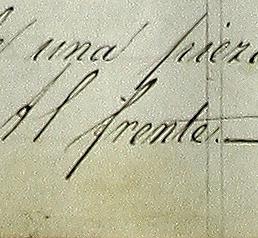 una pieza
Al frente